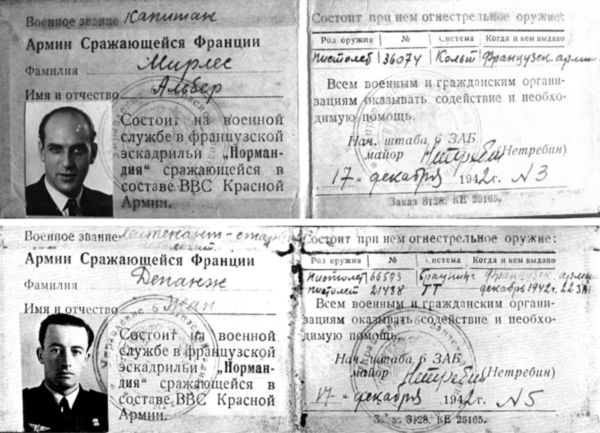 Военное звание Капитан
Армии Сражающейся Франции
Фамилия Мирлес
Имя и отчество Альбер
Состоит на военной
службе в французской
эскадрильи „Норман-
дия“ сражающейся в
составе ВВС Красной
Армии.
Состоит при нем огнестрельное оружие:
Род оружия № Система Когда и кем выдано
Пистолет 36074 Кольт Французск. арми
Всем военным и гражданским органи-
зациям оказывать содействие и необхо-
димую помощь.
Нач. штаба 6 ЗАБ
майор Нетребин (Нетребин)
17 декабря 1942г. №3
Заказ 3128. КЕ 26165.
Военное звание лейтенант-стар
Армии Сражающейся Франции
Фамилия Депанж
Имя и отчество Жан
Состоит на военной
службе в французской
эскадрильи „Норман-
дия“ сражающейся в
составе ВВС Красной
Армии.
Состоит при нем огнестрельное оружие:
Род оружия № Система Когда и кем выдано
Пистолет 66593 Браунинг Французск. арми
пистолет 21438 ТТ декабрь 1942г.
Всем военным и гражданским органи-
зациям оказывать содействие и необхо-
димую помощь.
Нач. штаба 6 ЗАБ
майор Нетребин (Нетребин)
17 декабря 1942г. №5
Заказ 3128. КЕ 26165.